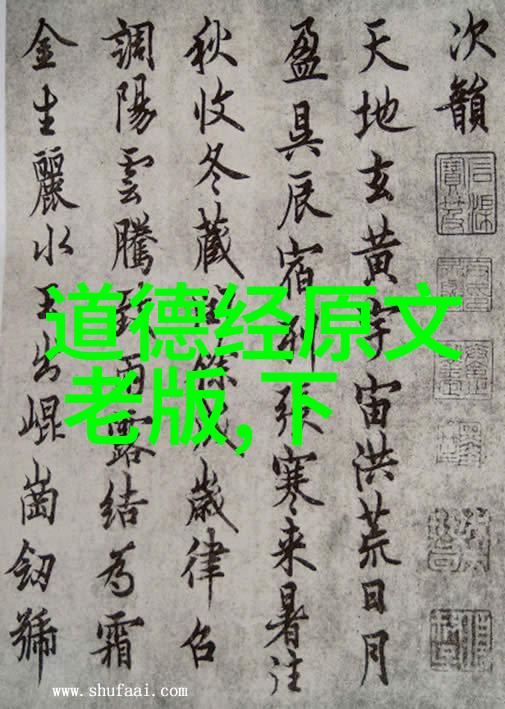 次韻
天地玄黃宇宙洪荒日月
盈昃辰宿列張寒来暑往
秋收冬藏閏餘成歲律召
調陽雲騰致雨露結為霜
金生麗水玉出崐崗劒號
道德经原文
老版,下
www.shufaai.com